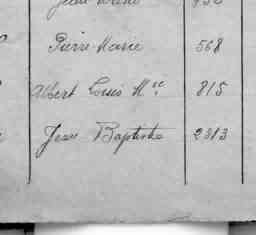 Pierre Marie 568
Albert Louis Mce 815
Jean Baptiste 2313